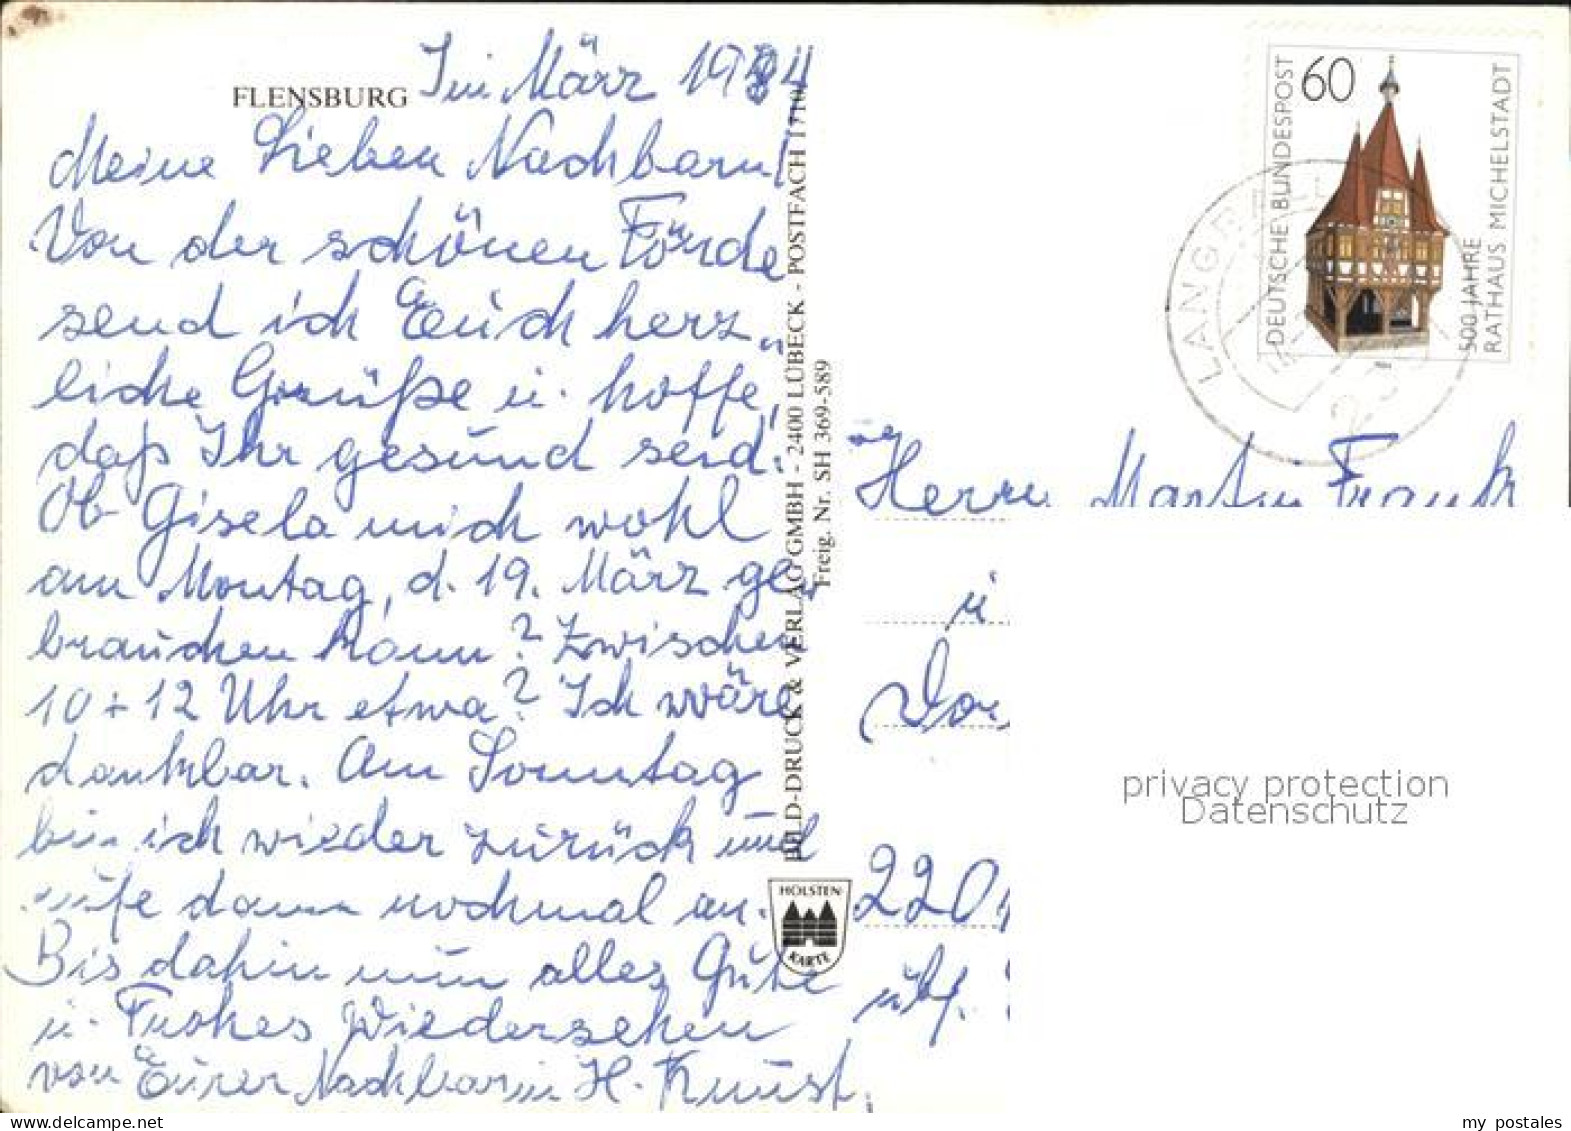 FLENSBURG
Im März 1984
Meine Lieben Nachbarn!
Von der schönen Förde
send ich Euch herz„
liche Grüße u. hoffe,
daß Ihr gesund seid.
Ob Gisela mich wohl
am Montag, d. 19. März ge„
brauchen kann? Zwischen
10 + 12 Uhr etwa? Ich wäre
dankbar. Am Sonntag
bin ich wieder zurück und
rufe dann nochmal an.
Bis dahin nun alles Gute
u. Frohes Wiedersehen
von Eurer Nachbarin H. Kunst.
BILD-DRUCK & VERLAG GMBH - 2400 LÜBECK - POSTFACH 1710
Freig. Nr. SH 369-589
HOLSTEN-
KARTE
60
DEUTSCHE BUNDESPOST
500 JAHRE
RATHAUS MICHELSTADT
Herrn Martin Frank
u
2201
privacy protection
Datenschutz
my postales